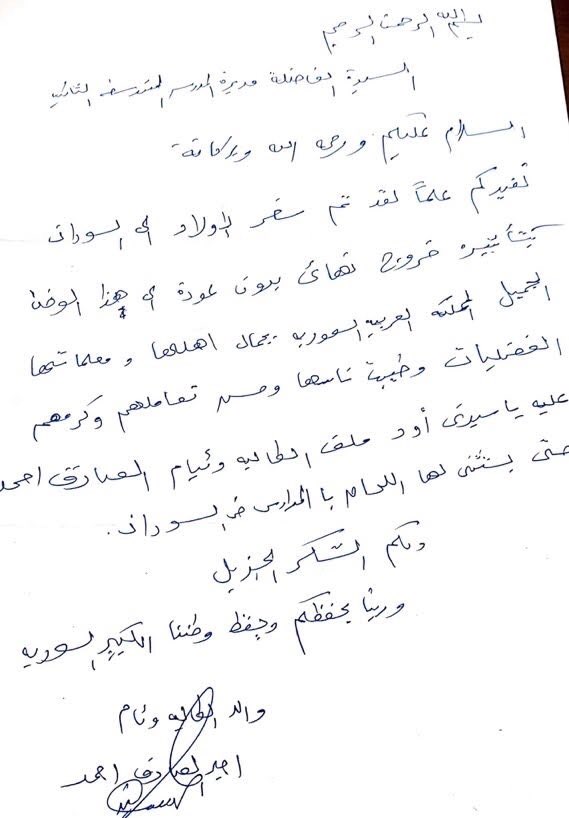 بسم الله الرحمن الرحيم
السيدة الفاضلة مديرة المدرسه المتوسطه الثانيه
السلام عليكم ورحمة الله وبركاته
نفيدكم علماً لقد تم سفر الاولاد الى السودان
بتأشيره خروج نهائى بدون عودة الى هذا الوطن
الجميل المملكه العربيه السعوديه بجمال اهلها ومعلماتها
الفضليات وطيبة ناسها وحسن تعاملهم وكرمهم
عليه يا سيدتى أود ملف الطالبه وئام الصادق احمد
حتى يستثنى لها اللحاق با المدارس فى السودان.
ولكم الشكر الجزيل
وربنا يحفظكم ويحفظ وطننا الكبير السعوديه
والد الطالبه وئام
الصادق احمد